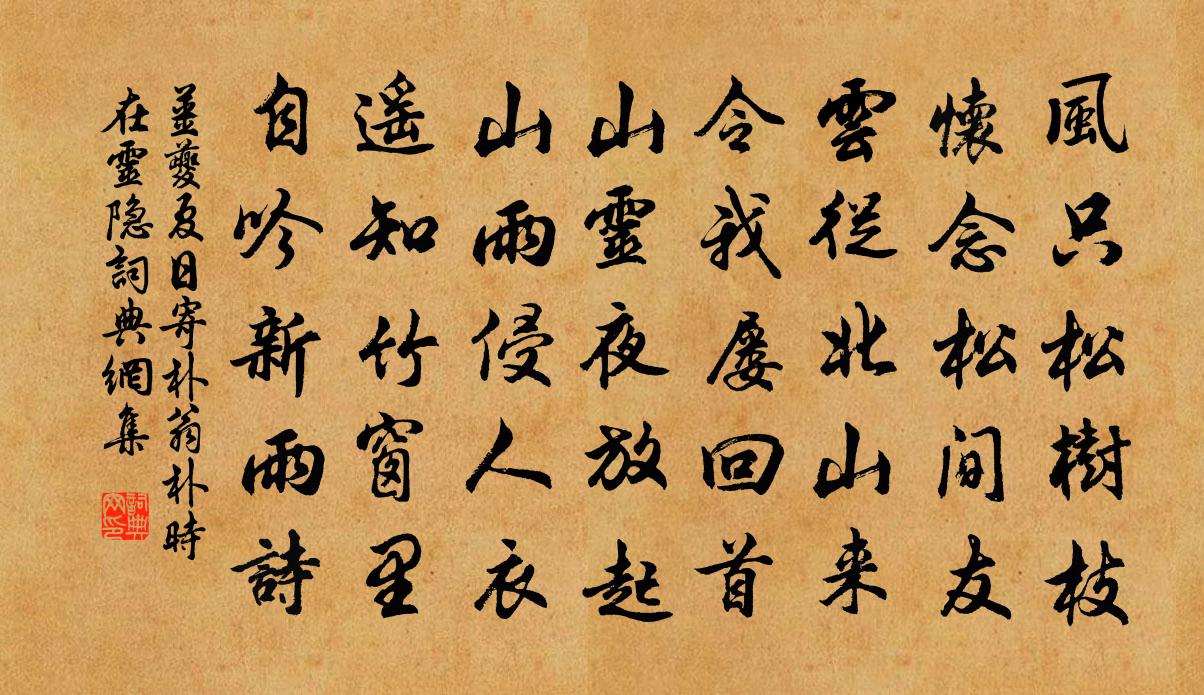 風只松樹枝
懷念松間友
雲從北山来
令我屡回首
山靈夜放起
山雨侵人衣
遥知竹窗里
自吟新雨詩
姜夔夏日寄朴翁朴時
在靈隐詞典網集
詞典
网印